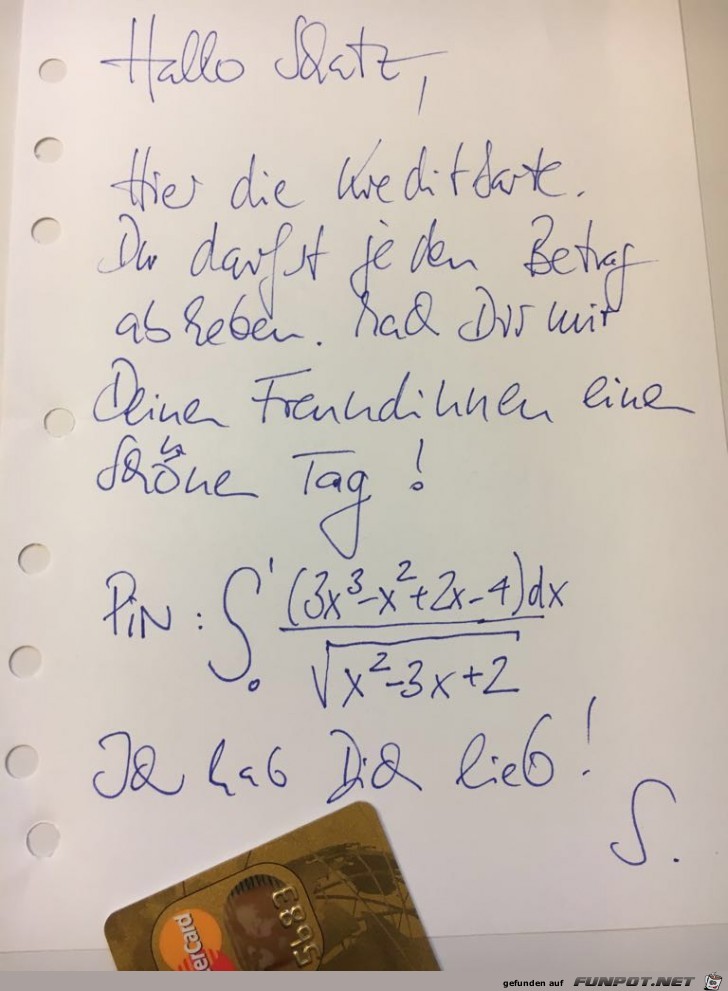 Hallo Schatz,
Hier die Kreditkarte.
Du darfst jeden Betrag
abheben. Mach Dir mit
Deinen Freundinnen einen
schönen Tag!
PIN: ∫₀¹ (3x³-x²+2x-4)dx / √(x²-3x+2)
Ich hab Dich lieb!
S.
5683
erCard
gefunden auf FUNPOT.NET